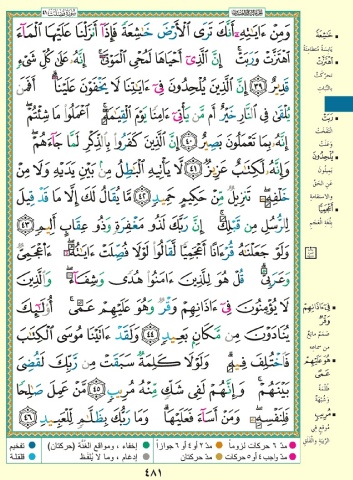 سُورَةُ فُصِّلَتْ ٤١
وَمِنْ ءَايَٰتِهِۦٓ أَنَّكَ تَرَى ٱلْأَرْضَ خَٰشِعَةً فَإِذَآ أَنزَلْنَا عَلَيْهَا ٱلْمَآءَ
ٱهْتَزَّتْ وَرَبَتْ ۚ إِنَّ ٱلَّذِىٓ أَحْيَاهَا لَمُحْىِ ٱلْمَوْتَىٰٓ ۚ إِنَّهُۥ عَلَىٰ كُلِّ شَىْءٍ
قَدِيرٌ ٣٩ إِنَّ ٱلَّذِينَ يُلْحِدُونَ فِىٓ ءَايَٰتِنَا لَا يَخْفَوْنَ عَلَيْنَآ ۗ أَفَمَن
يُلْقَىٰ فِى ٱلنَّارِ خَيْرٌ أَم مَّن يَأْتِىٓ ءَامِنًا يَوْمَ ٱلْقِيَٰمَةِ ۚ ٱعْمَلُوا۟ مَا شِئْتُمْ ۖ
إِنَّهُۥ بِمَا تَعْمَلُونَ بَصِيرٌ ٤٠ إِنَّ ٱلَّذِينَ كَفَرُوا۟ بِٱلذِّكْرِ لَمَّا جَآءَهُمْ ۖ
وَإِنَّهُۥ لَكِتَٰبٌ عَزِيزٌ ٤١ لَّا يَأْتِيهِ ٱلْبَٰطِلُ مِنۢ بَيْنِ يَدَيْهِ وَلَا مِنْ
خَلْفِهِۦ ۖ تَنزِيلٌ مِّنْ حَكِيمٍ حَمِيدٍ ٤٢ مَّا يُقَالُ لَكَ إِلَّا مَا قَدْ قِيلَ
لِلرُّسُلِ مِن قَبْلِكَ ۚ إِنَّ رَبَّكَ لَذُو مَغْفِرَةٍ وَذُو عِقَابٍ أَلِيمٍ ٤٣
وَلَوْ جَعَلْنَٰهُ قُرْءَانًا أَعْجَمِيًّا لَّقَالُوا۟ لَوْلَا فُصِّلَتْ ءَايَٰتُهُۥٓ ۖ ءَا۬عْجَمِىٌّ
وَعَرَبِىٌّ ۗ قُلْ هُوَ لِلَّذِينَ ءَامَنُوا۟ هُدًى وَشِفَآءٌ ۖ وَٱلَّذِينَ
لَا يُؤْمِنُونَ فِىٓ ءَاذَانِهِمْ وَقْرٌ وَهُوَ عَلَيْهِمْ عَمًى ۚ أُو۟لَٰٓئِكَ
يُنَادَوْنَ مِن مَّكَانٍۭ بَعِيدٍ ٤٤ وَلَقَدْ ءَاتَيْنَا مُوسَى ٱلْكِتَٰبَ
فَٱخْتُلِفَ فِيهِ ۗ وَلَوْلَا كَلِمَةٌ سَبَقَتْ مِن رَّبِّكَ لَقُضِىَ
بَيْنَهُمْ ۚ وَإِنَّهُمْ لَفِى شَكٍّ مِّنْهُ مُرِيبٍ ٤٥ مَّنْ عَمِلَ صَٰلِحًا
فَلِنَفْسِهِۦ ۖ وَمَنْ أَسَآءَ فَعَلَيْهَا ۗ وَمَا رَبُّكَ بِظَلَّٰمٍ لِّلْعَبِيدِ ٤٦
خَاشِعَةً
يابسة متطامنة
اهْتَزَّتْ
تحركت
بالنبات
رَبَتْ
انتفخت
وعلت
يُلْحِدُونَ
يميلون
عن الحق
والاستقامة
أَعْجَمِيًّا
بلغة العجم
فِي آذَانِهِمْ
وَقْرٌ
صمم مانع
من سماعه
هُوَ عَلَيْهِمْ
عَمًى
ظلمة
وشبهة
مُرِيبٍ
موقع في
الريبة والقلق
مدّ ٦ حركات لزوماً مدّ ٢ أو ٤ أو ٦ جوازاً إخفاء، ومواقع الغُنَّة (حركتان) تفخيم
مدّ واجب ٤ أو ٥ حركات مدّ حركتان إدغام، وما لا يُلفَظ قلقلة
٤٨١